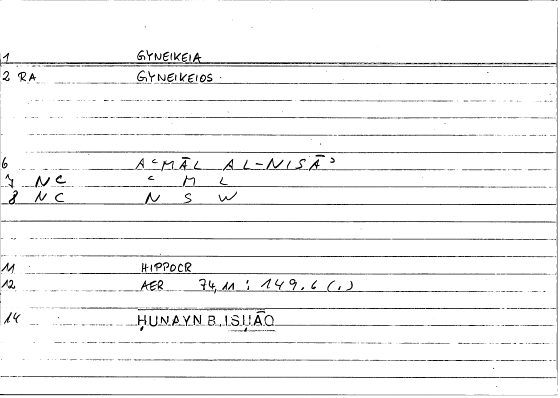 1 GYNEIKEIA
2 RA GYNEIKEIOS
6 AʿMĀL AL-NISĀʾ
7 NC ʿ M L
8 NC N S W
11 HIPPOCR
12 AER 74,11 : 149.6 (.)
14 ḤUNAYN B. ISḤĀQ